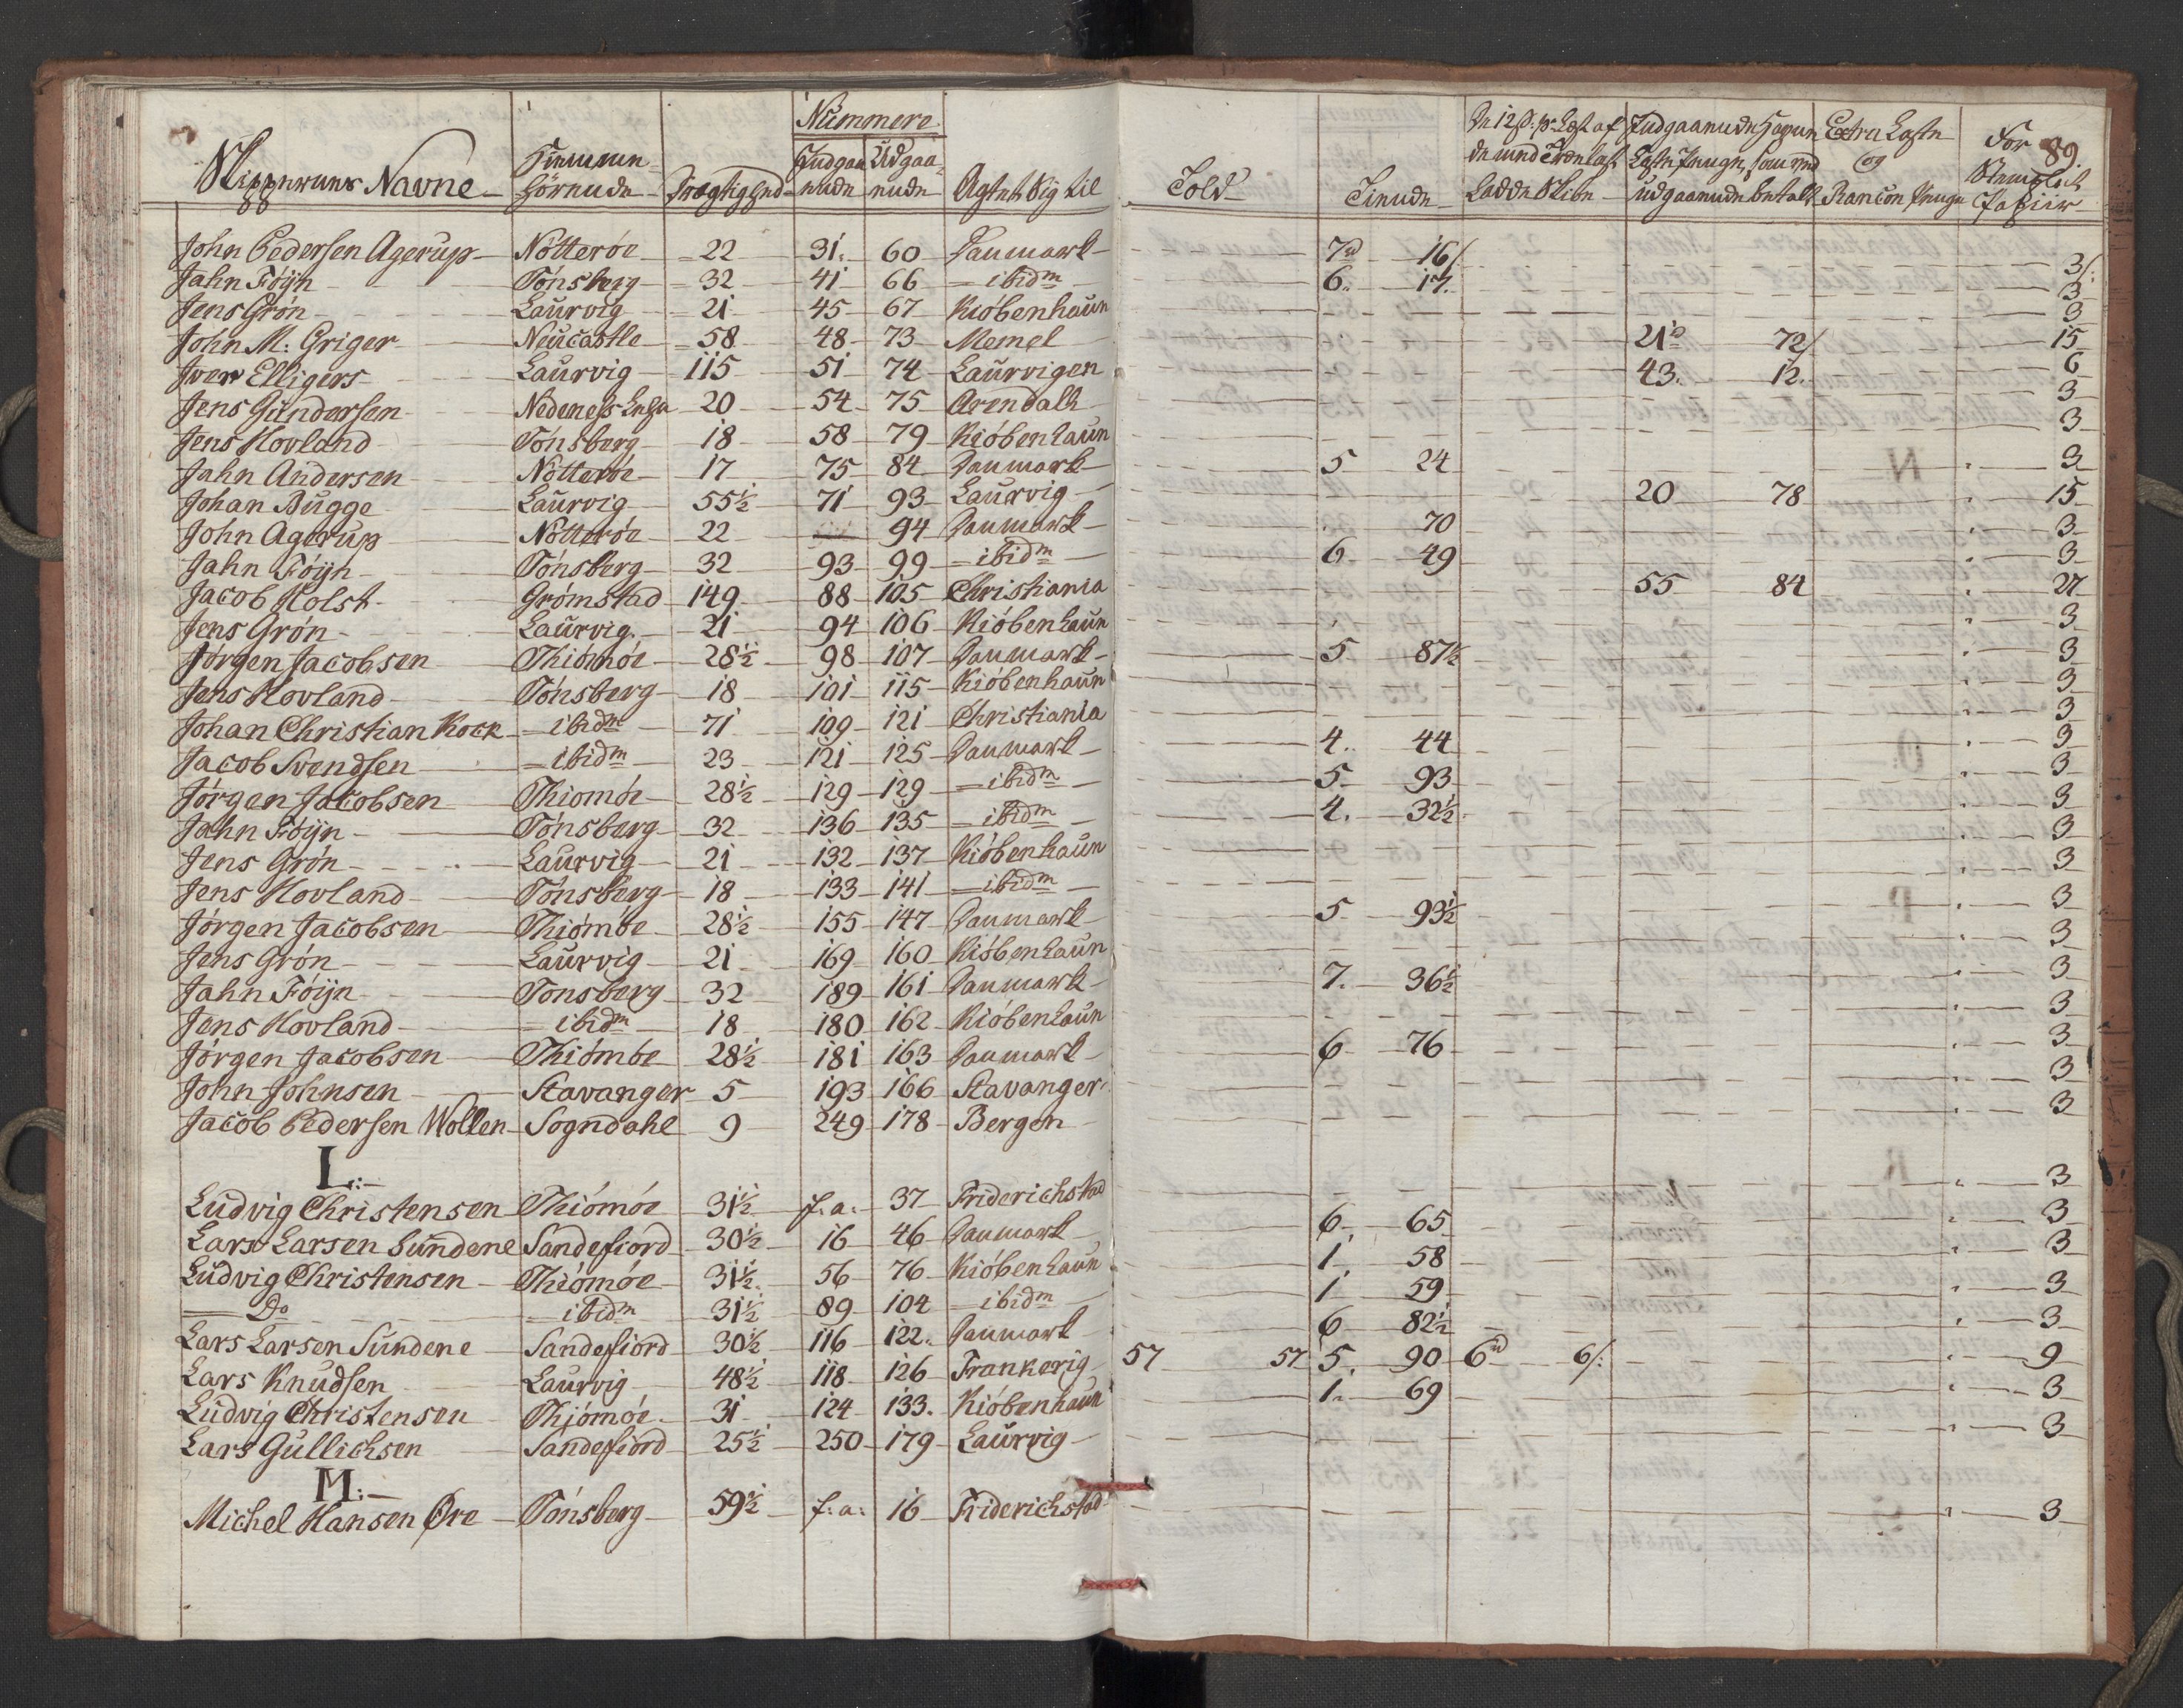 Nummere
Skippernes Navne Hiemme- Hörende Drægtighed Indgaa- ende Udgaa- ende Agtet Sig til Told Tiende De 12 s: pr Læst af de med Trælast Ladde Skibe Indgaaende Havne Læste Penge, som ved udgaaende betalt Extra Læste og Rancon Penge For Stemplet Papiir 89.
John Pedersen Agerup Nötteröe 22 31. 60 Danmark 7 16 3
Jahn Föÿn Tönsberg 32 41 66 ibidm 6. 17. 3
Jens Grön Laurvig 21 45 67 Kiöbenhaun 3
John M: Griger Neucastle 58 48 73 Memel 21 72 15
Iver Elligers Laurvig 115 51 74 Laurvigen 43. 12. 6
Jens Gundersen Nedeness 20 54 75 Arendall 3
Jens Hovland Tönsberg 18 58 79 Kiöbenhaun 3
Jahn Andersen Nötteröe 17 75 84 Danmark 5 24 3
Johan Bugge Laurvig 55½ 71 93 Laurvig 20 78 15
John Agerup Nötteröe 22 94 Danmark 70 3
Jahn Föÿn Tönsberg 32 93 99 ibidm 6 49 3
Jacob Holst Grömstad 149 88 105 Christiania 55 84 27
Jens Grön Laurvig. 21 94 106 Kiöbenhaun 3
Jörgen Jacobsen Thiömöe 28½ 98 107 Danmark 5 87½ 3
Jens Hovland Tönsberg 18 101 115 Kiöbenhaun 3
Johan Christian Kock ibidm 71 109 121 Christiania 3
Jacob Svendsen ibidm 23 121 125 Danmark 4. 44 3
Jörgen Jacobsen Thiomöe 28½ 129 129 ibidm 5 93 3
Jahn Föÿn Tönsberg 32 136 135 ibidm 4. 32½ 3
Jens Grön Laurvig 21 132 137 Kiöbenhaun 3
Jens Hovland Tönsberg 18 133 141 ibidm 3
Jörgen Jacobsen Thiömöe 28½ 155 147 Danmark 5 93½ 3
Jens Grön Laurvig 21 169 160 Kiöbenhaun 3
Jahn Föÿn Tonsberg 32 189 161 Danmark 7. 36½ 3
Jens Hovland ibidm 18 180 162 Kiöbenhaun 3
Jörgen Jacobsen Thiömöe 28½ 181 163 Danmark 6 76 3
John Johnsen Stavanger 5 193 166 Stavanger 3
Jacob Pedersen Wollen Sogndahl 9 249 178 Bergen 3
L:
Ludvig Christensen Thiömöe 31½ f: a: 37 Friderichstad 3
Lars Larsen Sundene Sandefiord 30½ 16 46 Danmark 6 65 3
Ludvig Christensen Thiömöe 31½ 56 76 Kiöbenhaun 1 58 3
Do ibidm 31½ 89 104 ibidm 1 59 3
Lars Larsen Sundene Sandefiord 30½ 116 122. Danmark 6 82½ 3
Lars Knudsen Laurvig 48½ 118 126 Frankerig 57 57 5 90 6 6 9
Ludvig Christensen Thiömöe 31 124 133. Kiöbenhaun 1. 69 3
Lars Gullichsen Sandefiord 25½ 250 179 Laurvig 3
M:
Michel Hansen Øre Tönsberg 59½ f: a: 16 Friderichstad 3